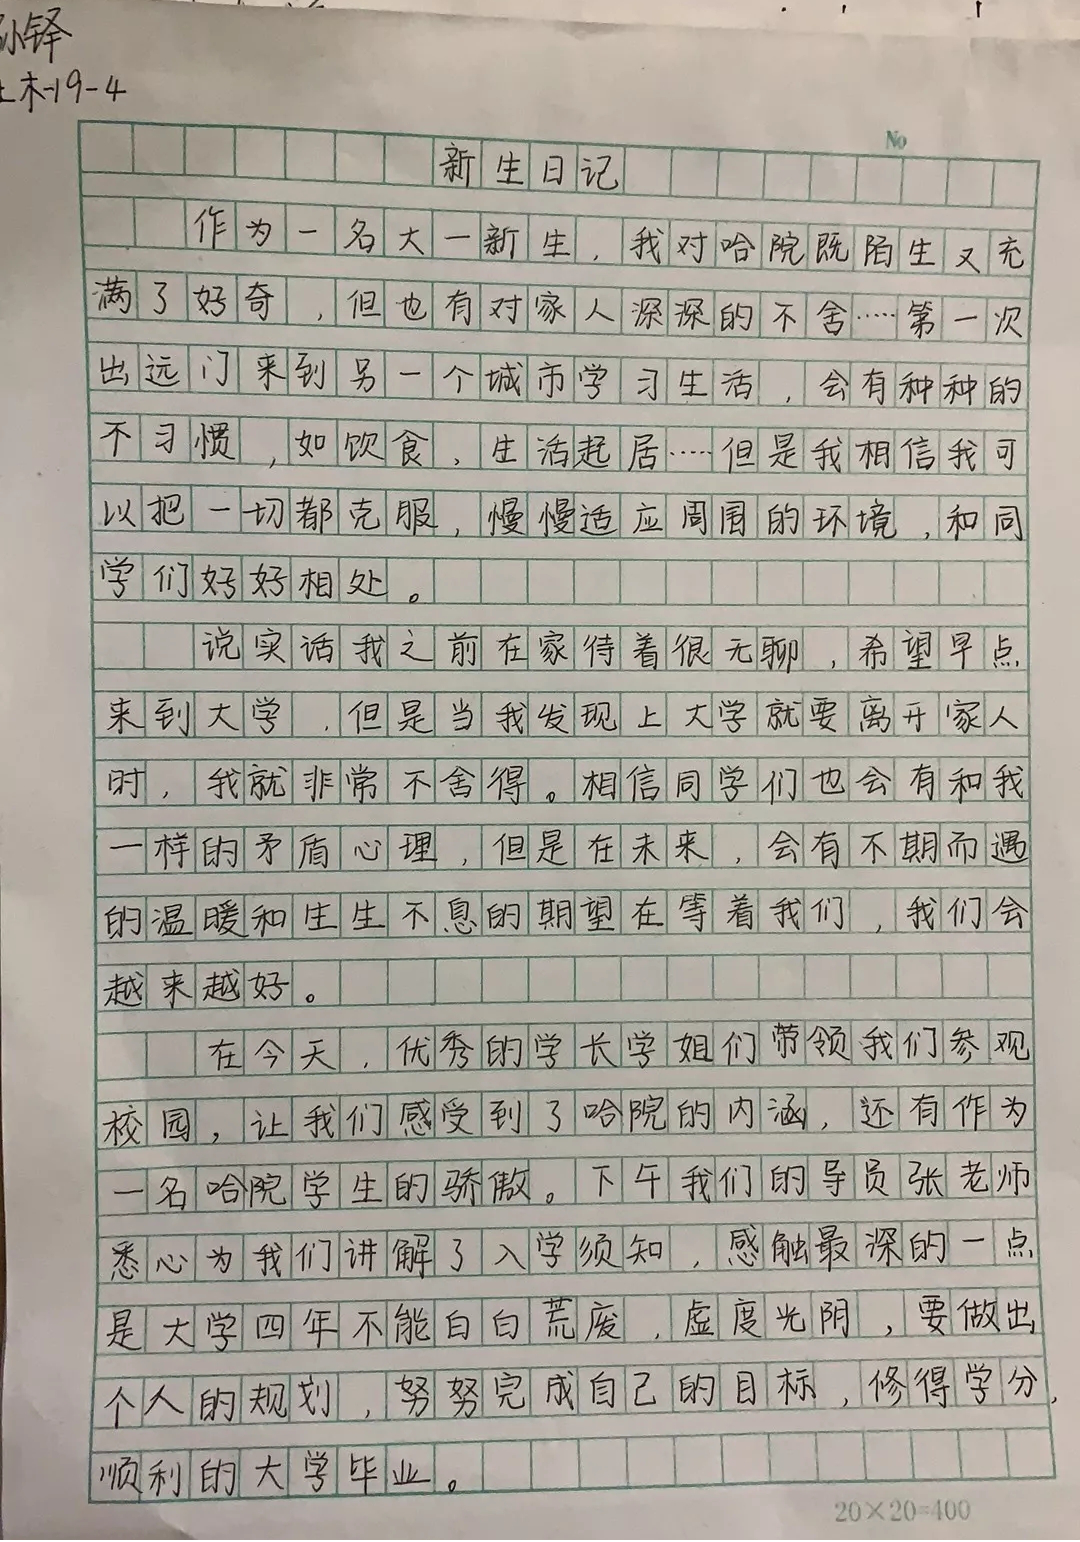 孙铎
土木-19-4
No
新生日记
作为一名大一新生，我对哈院既陌生又充
满了好奇，但也有对家人深深的不舍……第一次
出远门来到另一个城市学习生活，会有种种的
不习惯，如饮食，生活起居……但是我相信我可
以把一切都克服，慢慢适应周围的环境，和同
学们好好相处。
说实话我之前在家待着很无聊，希望早点
来到大学，但是当我发现上大学就要离开家人
时，我就非常不舍得。相信同学们也会有和我
一样的矛盾心理，但是在未来，会有不期而遇
的温暖和生生不息的期望在等着我们，我们会
越来越好。
在今天，优秀的学长学姐们带领我们参观
校园，让我们感受到了哈院的内涵，还有作为
一名哈院学生的骄傲。下午我们的导员张老师
悉心为我们讲解了入学须知，感触最深的一点
是大学四年不能白白荒废，虚度光阴，要做出
个人的规划，努努完成自己的目标，修得学分，
顺利的大学毕业。
20×20=400